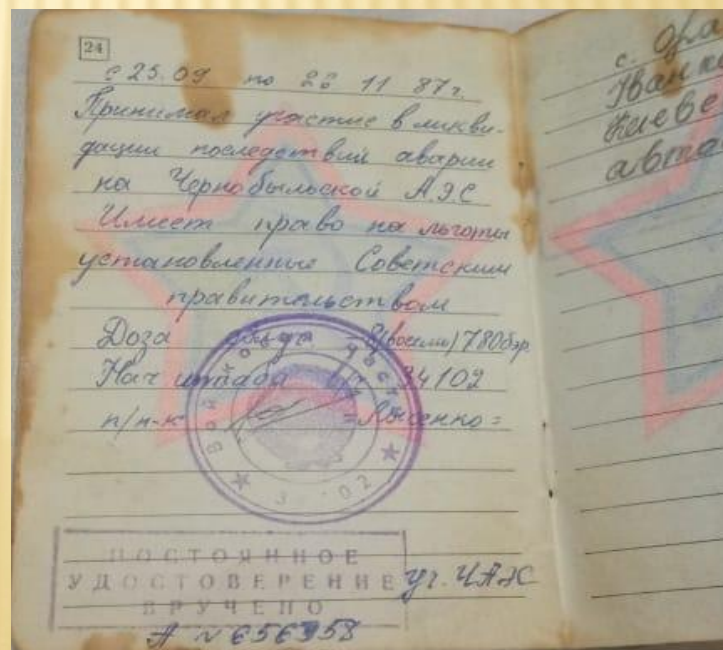 24
с 25.09 по 26 11 87г.
Принимал участие в ликви-
дации последствий аварии
на Чернобыльской АЭС
Имеет право на льготы
установленные Советским
правительством
Доза 8(восемь)780бэр.
Нач штаба в/ч 34102
п/п-к =Лысенко=
Войсковая часть
3 02
ПОСТОЯННОЕ
УДОСТОВЕРЕНИЕ уч. ЧАЭС
ВРУЧЕНО
А № 656958
с. Ора
Іванк
Киев
авто